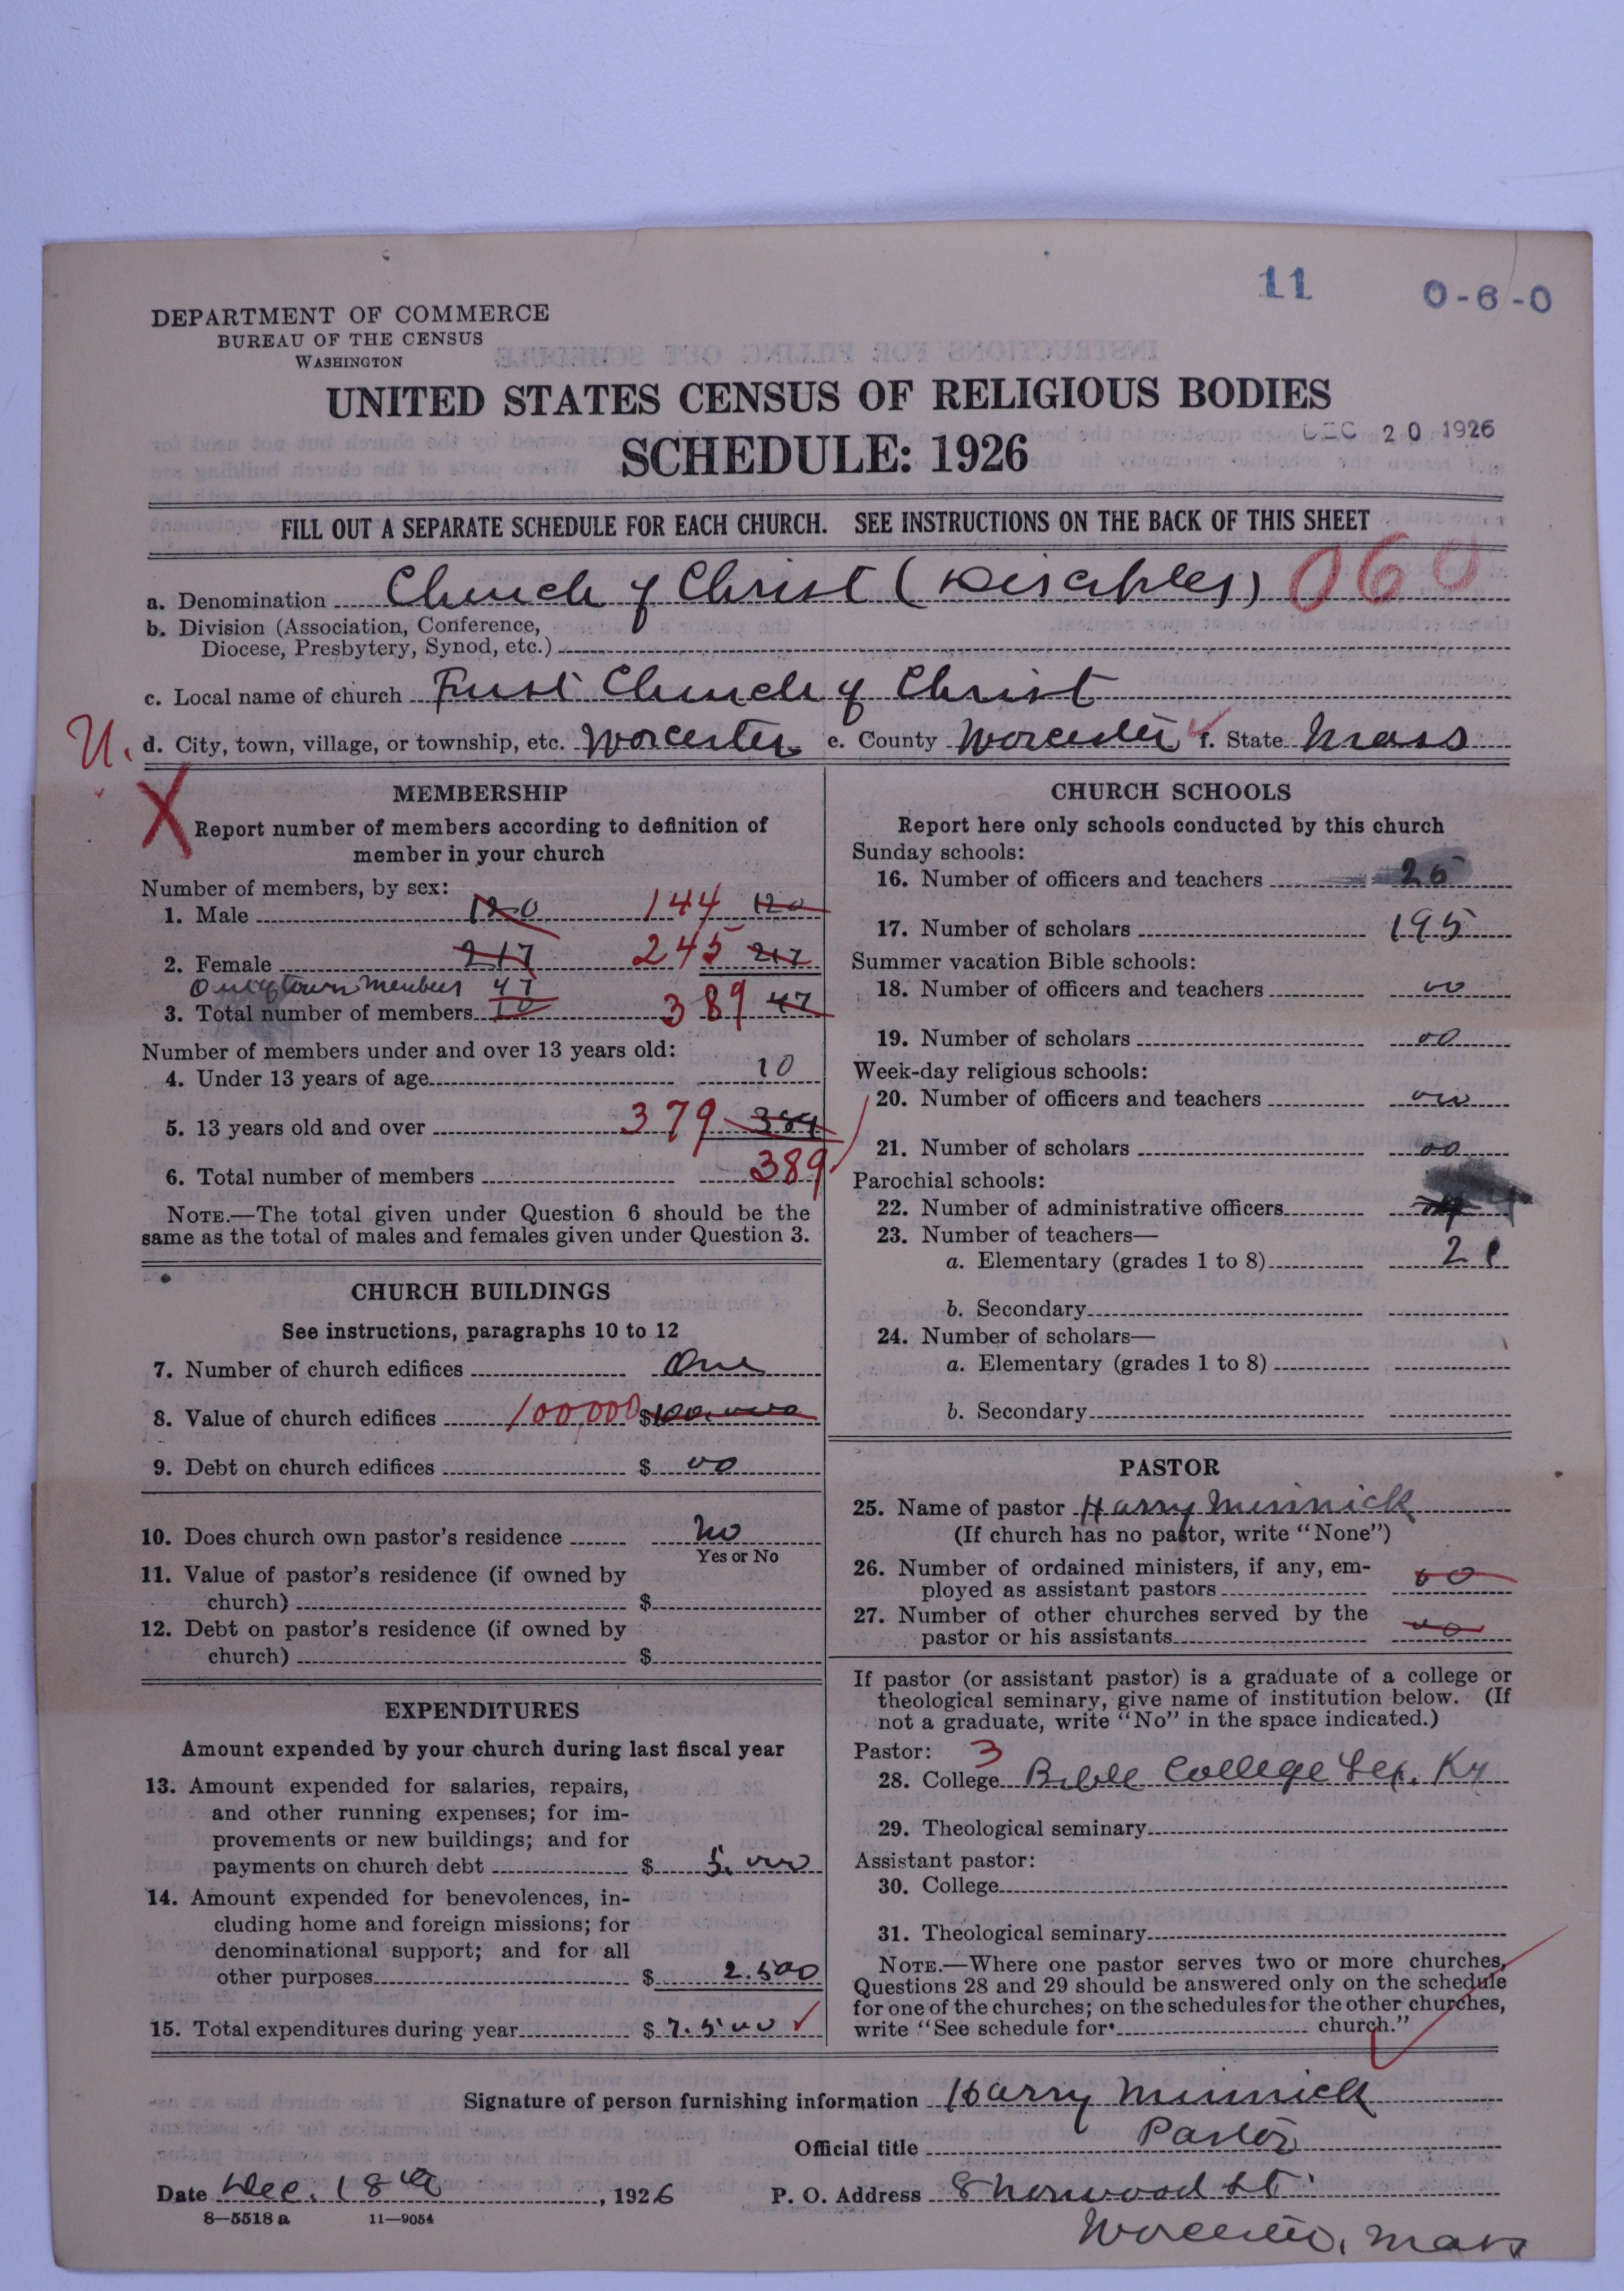 11 0-6-0
DEPARTMENT OF COMMERCE
BUREAU OF THE CENSUS
WASHINGTON
UNITED STATES CENSUS OF RELIGIOUS BODIES
SCHEDULE: 1926
DEC 20 1926
FILL OUT A SEPARATE SCHEDULE FOR EACH CHURCH. SEE INSTRUCTIONS ON THE BACK OF THIS SHEET
a. Denomination Church of Christ (Disciples) 060
b. Division (Association, Conference,
Diocese, Presbytery, Synod, etc.)
c. Local name of church First Church of Christ
U. d. City, town, village, or township, etc. Worcester e. County Worcester f. State Mass
X
MEMBERSHIP
Report number of members according to definition of
member in your church
Number of members, by sex:
1. Male 120 144 120
2. Female 217 245 217
Out of town members 47
3. Total number of members 10 389 47
Number of members under and over 13 years old:
4. Under 13 years of age 10
5. 13 years old and over 379 384
6. Total number of members 389
NOTE.—The total given under Question 6 should be the
same as the total of males and females given under Question 3.
CHURCH BUILDINGS
See instructions, paragraphs 10 to 12
7. Number of church edifices One
8. Value of church edifices 100,000 $100,000
9. Debt on church edifices $ 00
10. Does church own pastor's residence No
Yes or No
11. Value of pastor's residence (if owned by
church) $
12. Debt on pastor's residence (if owned by
church) $
EXPENDITURES
Amount expended by your church during last fiscal year
13. Amount expended for salaries, repairs,
and other running expenses; for im-
provements or new buildings; and for
payments on church debt $ 5.000
14. Amount expended for benevolences, in-
cluding home and foreign missions; for
denominational support; and for all
other purposes $ 2.500
15. Total expenditures during year $ 7.500
CHURCH SCHOOLS
Report here only schools conducted by this church
Sunday schools:
16. Number of officers and teachers 26
17. Number of scholars 195
Summer vacation Bible schools:
18. Number of officers and teachers 00
19. Number of scholars 00
Week-day religious schools:
20. Number of officers and teachers 00
21. Number of scholars 00
Parochial schools:
22. Number of administrative officers
23. Number of teachers—
a. Elementary (grades 1 to 8) 2
b. Secondary
24. Number of scholars—
a. Elementary (grades 1 to 8)
b. Secondary
PASTOR
25. Name of pastor Harry Minnick
(If church has no pastor, write "None")
26. Number of ordained ministers, if any, em-
ployed as assistant pastors 00
27. Number of other churches served by the
pastor or his assistants 00
If pastor (or assistant pastor) is a graduate of a college or
theological seminary, give name of institution below. (If
not a graduate, write "No" in the space indicated.)
Pastor: 3
28. College Bible College Lex. Ky
29. Theological seminary
Assistant pastor:
30. College
31. Theological seminary
NOTE.—Where one pastor serves two or more churches,
Questions 28 and 29 should be answered only on the schedule
for one of the churches; on the schedules for the other churches,
write "See schedule for church."
Signature of person furnishing information Harry Minnick
Official title Pastor
Date Dec. 18th, 1926 P. O. Address Sherwood St
8—5518 a 11—9054
Worcester, Mass